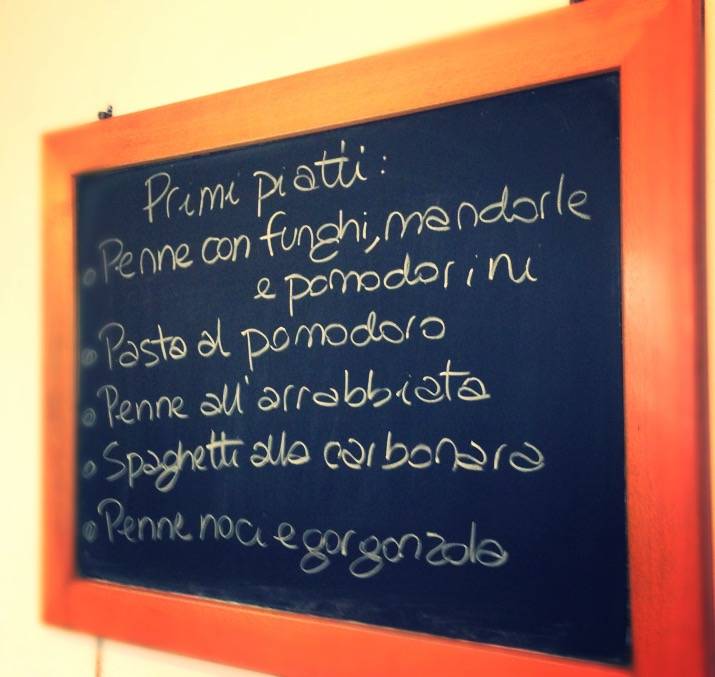 Primi piatti:
Penne con funghi, mandorle
e pomodorini
Pasta al pomodoro
Penne all'arrabbiata
Spaghetti alla carbonara
Penne noci e gorgonzola